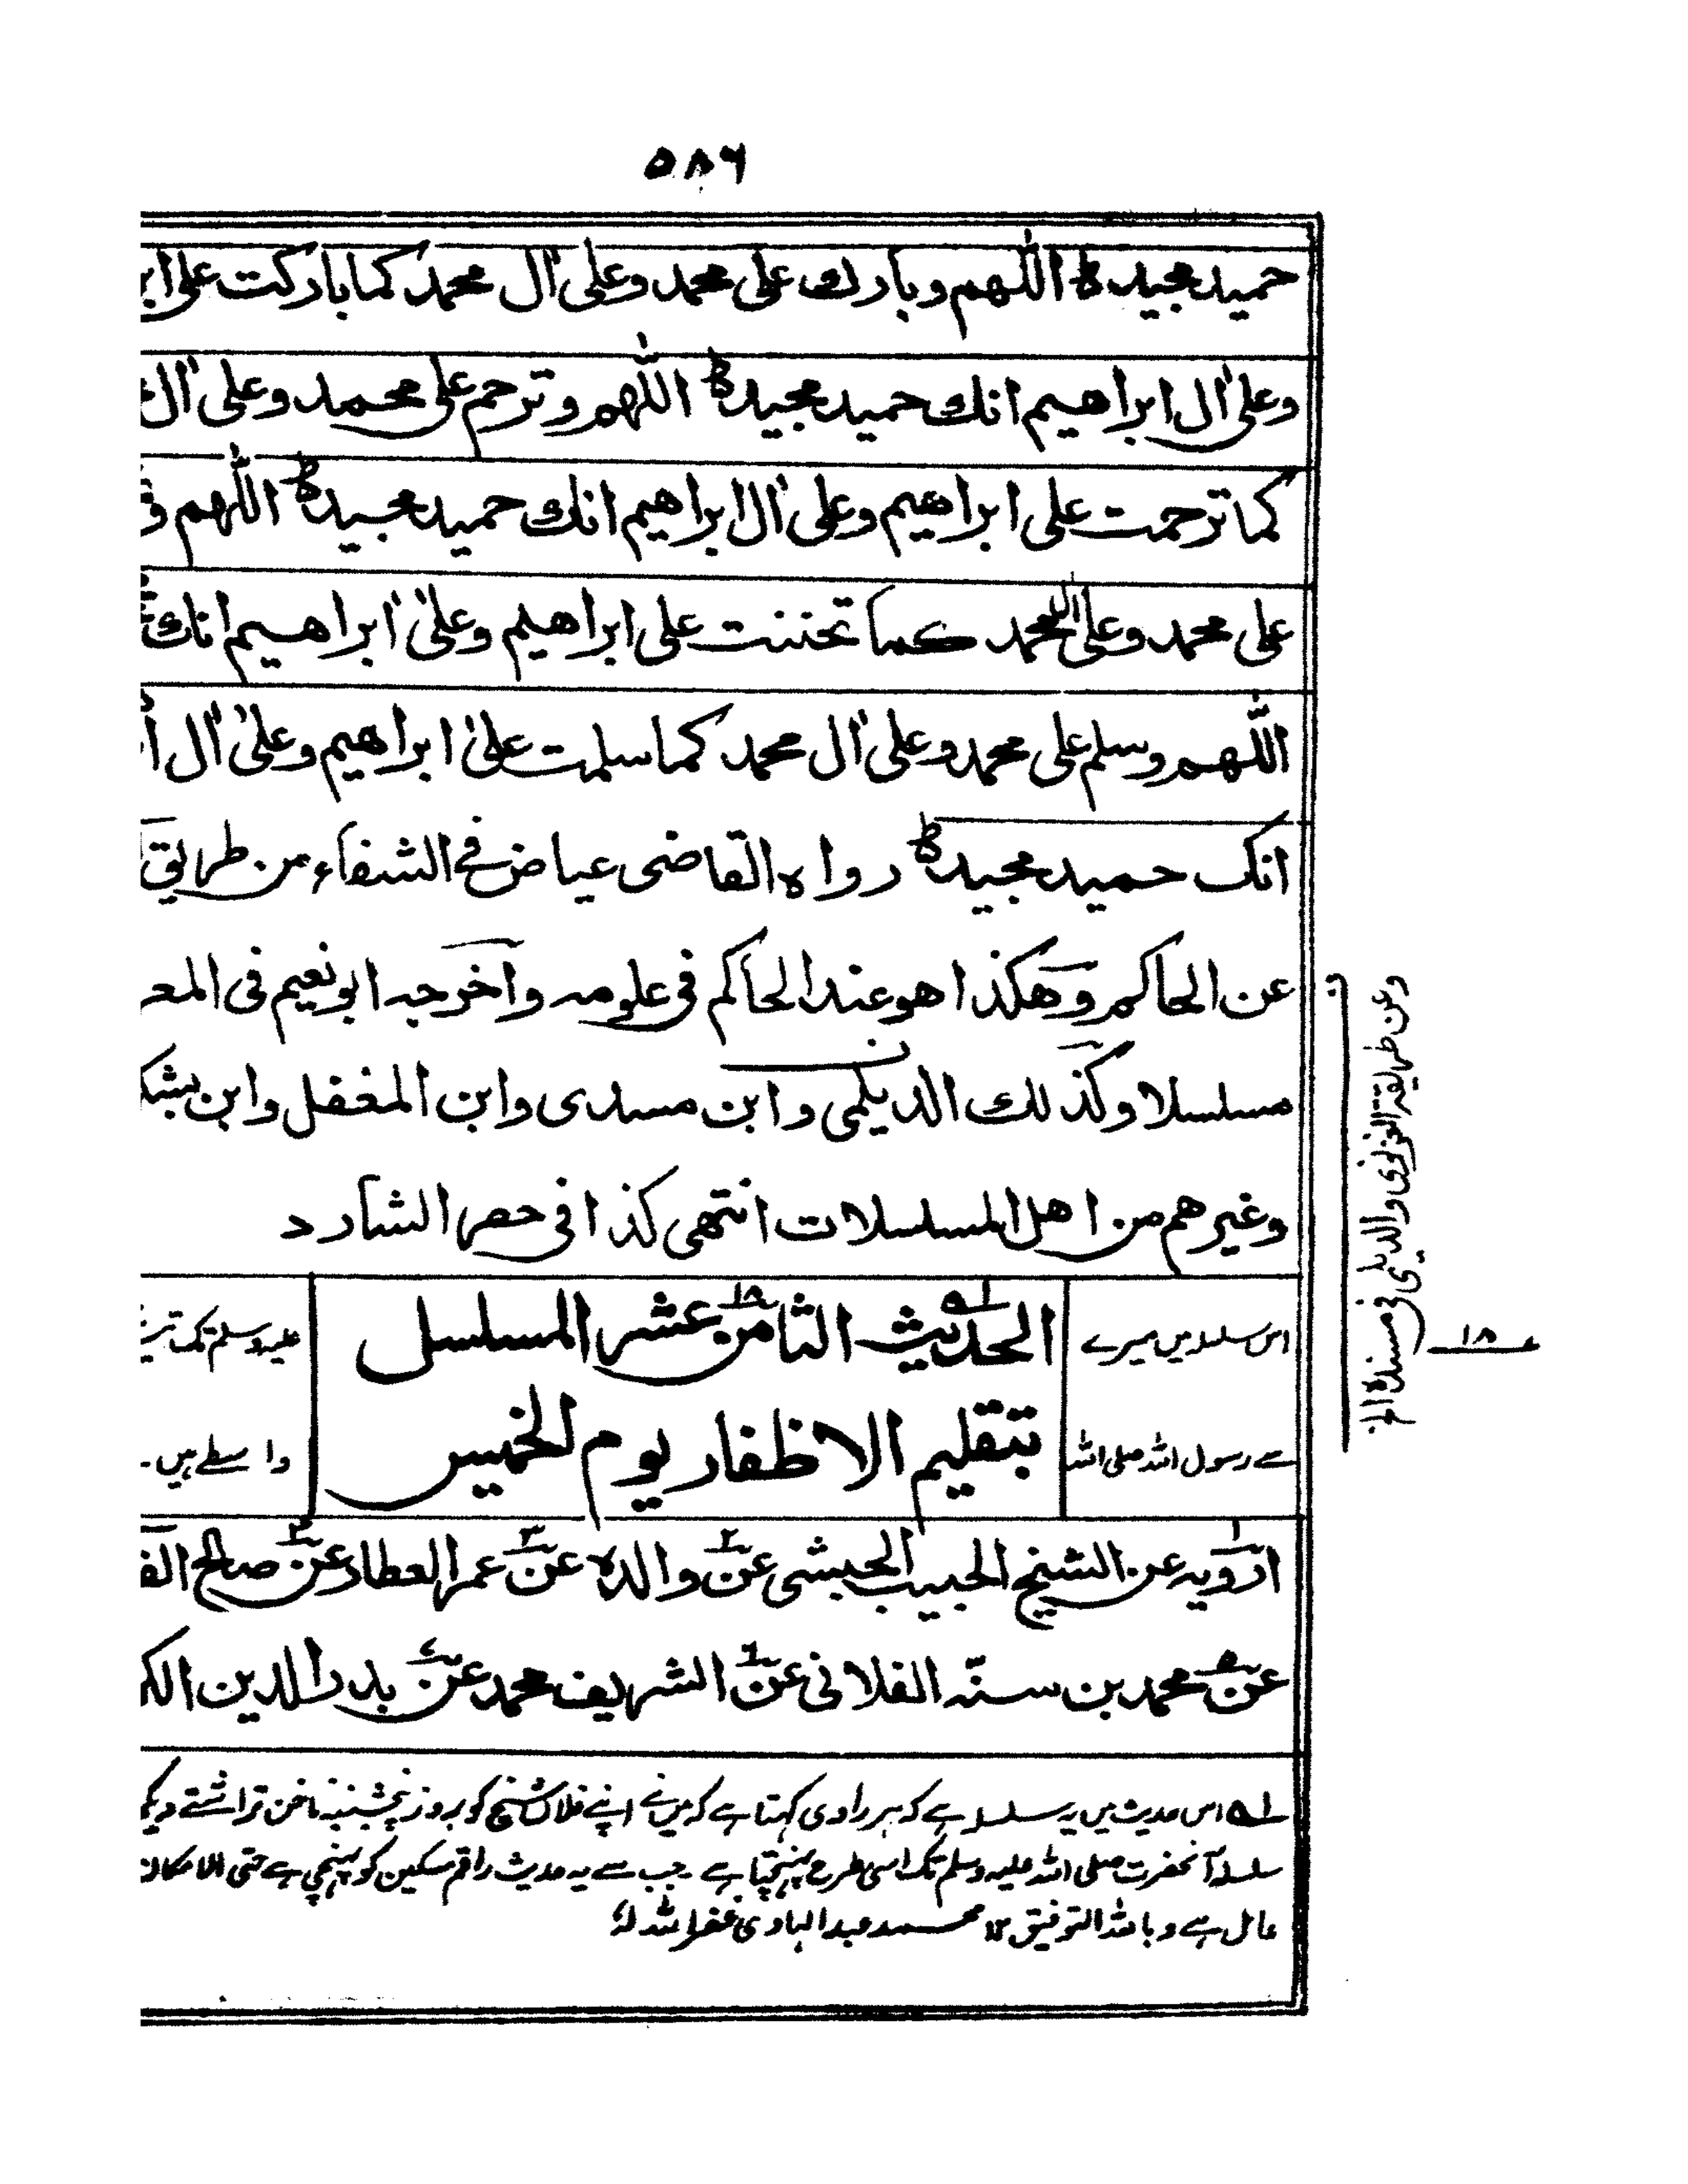 ۵۸۶
حمید مجید ط اللّٰهم وبارك علی محمد وعلی اٰل محمد کما بارکت علی
وعلی اٰل ابراهیم انك حمید مجید ط اللّٰهم وترحم علی محمد وعلی اٰل
کما ترحمت علی ابراهیم وعلی اٰل ابراهیم انك حمید مجید ط اللّٰهم
علی محمد وعلی اٰل محمد کما تحننت علی ابراهیم وعلیٰ اٰبراهیم انك
اللّٰهم وسلم علی محمد وعلی اٰل محمد کما سلمت علیٰ ابراهیم وعلیٰ اٰل
انك حمید مجید ط رواه القاضی عیاض فے الشفاء من طریق
عن الحاکم وهکذا هو عند الحاکم فی علومه واخرجه ابو نعیم فی
مسلسلا وکذلك الدیلمی وابن مسدی وابن المغفل وابن
وغیرهم من اهل المسلسلات انتهی کذا فی حصر الشارد
وعن طریقة الغزنوی والدیلمی فی مسنده الخ
۱۸
اس سلسلہ میں میرے
سے رسول اللہ صلی اللہ
الحدیث الثامن عشر المسلسل
بتقلیم الاظفار یوم الخمیس
علیہ وسلم تک
واسطے ہیں۔
ارویه عن الشیخ الحبیب الحبشی عن والده عن عمر العطار عن صالح
عن محمد بن سنّه الفلانی عن الشریف محمد عن بدر الدین
لہ اس حدیث میں یہ سلسلہ ہے کہ ہر راوی کہتا ہے کہ میں نے اپنے فلاں شیخ کو بروز پنجشنبہ ناخن تراشتے
سلسلہ آنحضرت صلی اللہ علیہ وسلم تک اسی طرح پہنچتا ہے۔ جب سے یہ حدیث راقم مسکین کو پہنچی ہے حتی الامکان
عامل ہے وباللہ التوفیق ۱۲ محمد عبد الہادی غفر اللہ لہٗ